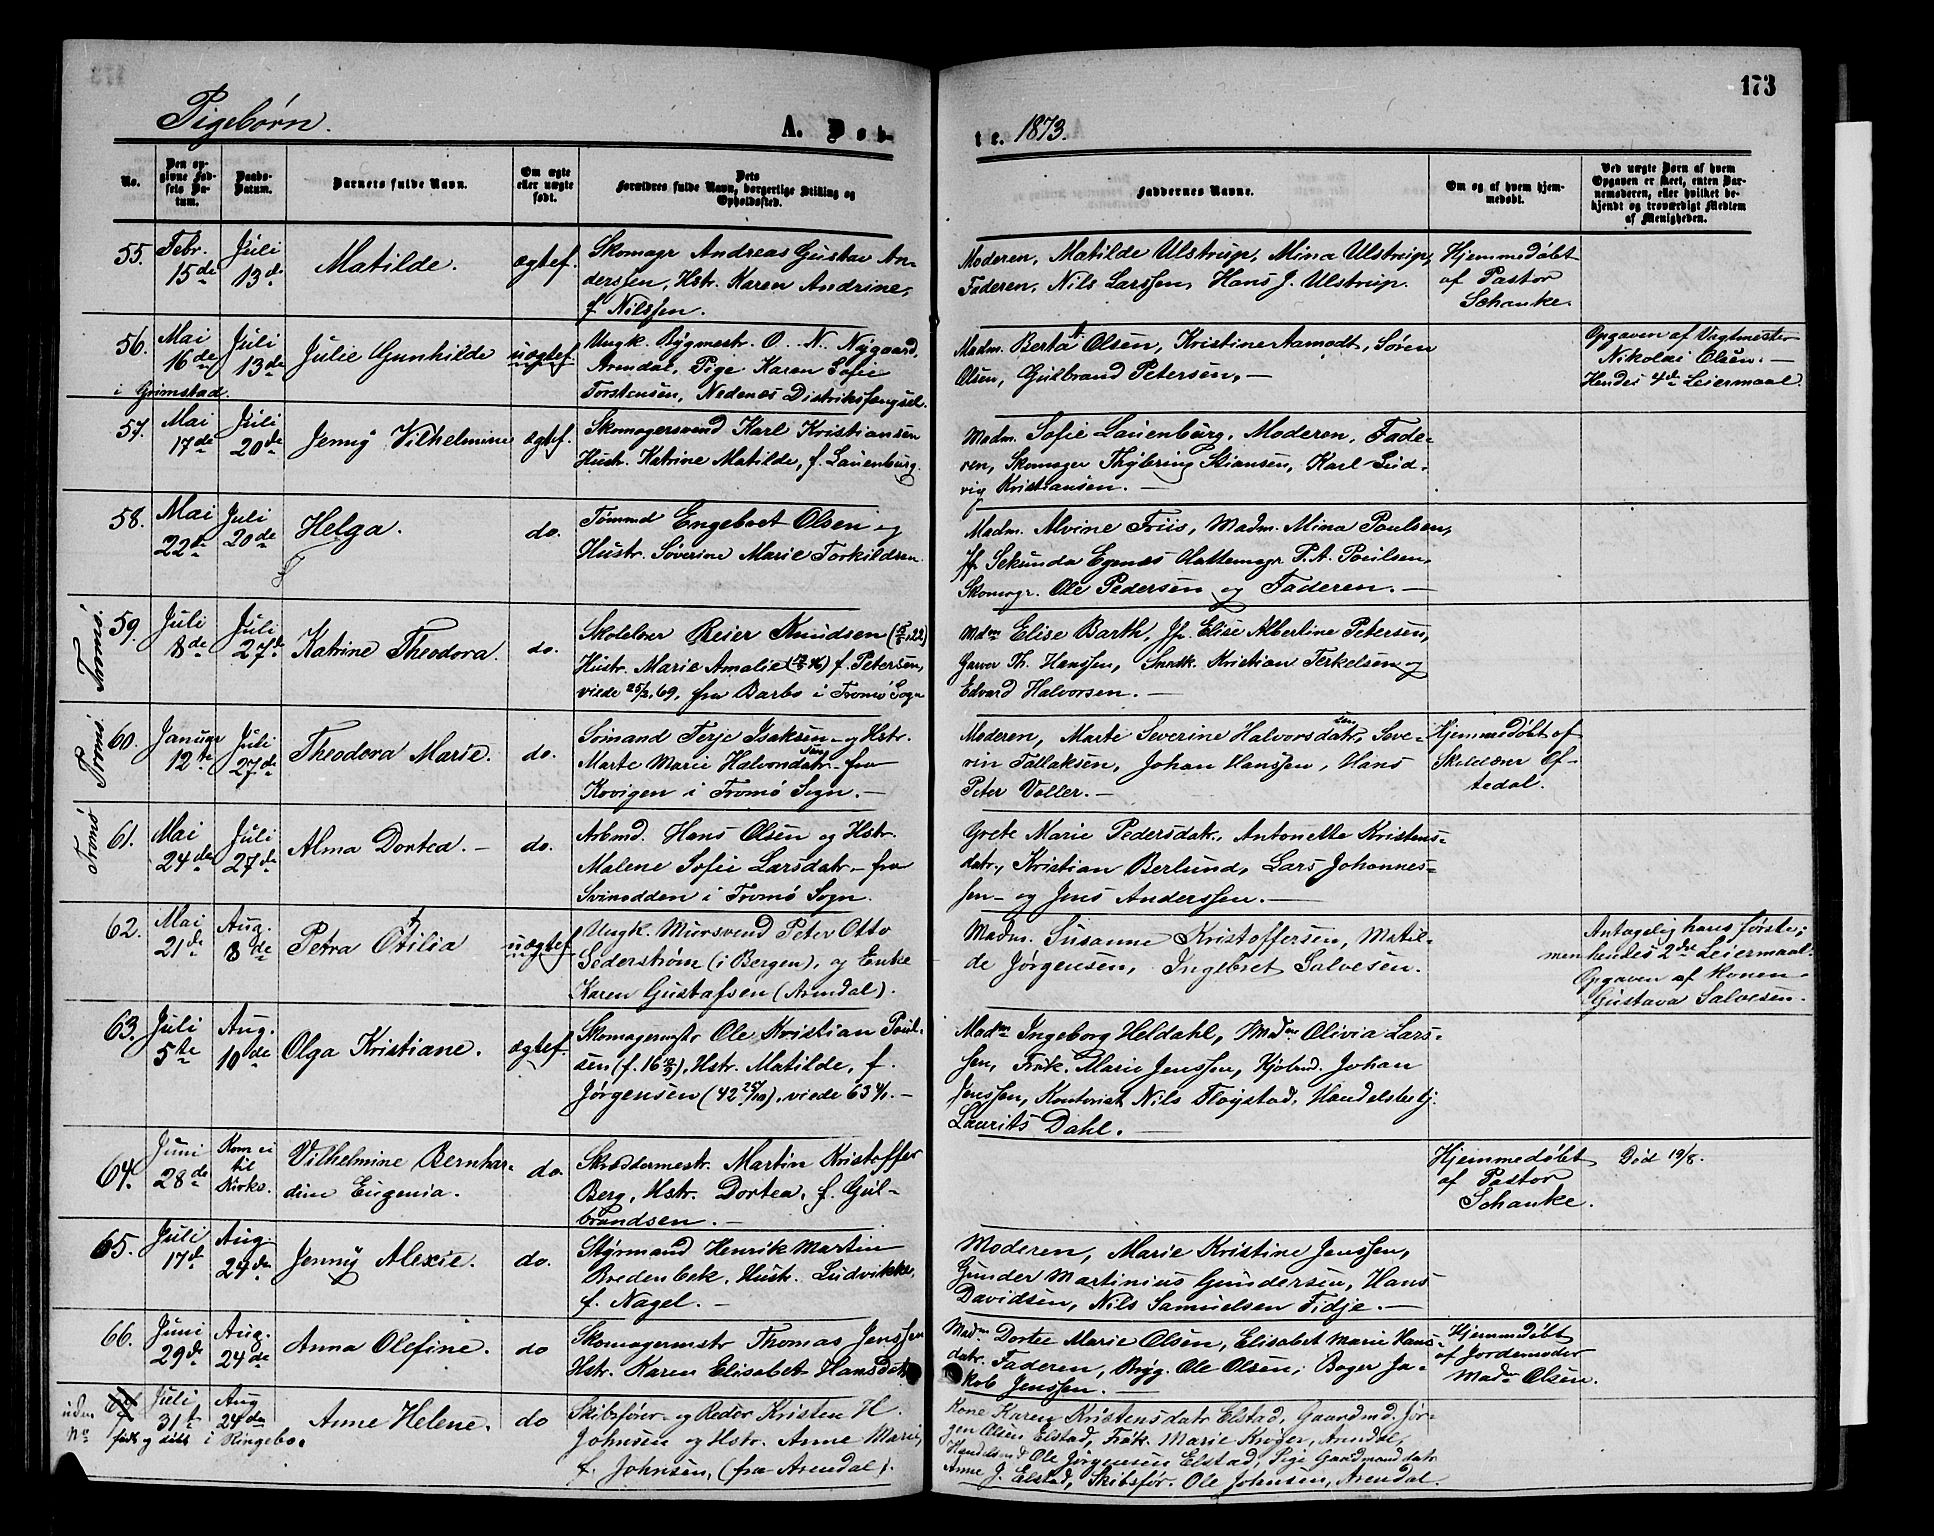 173
Pigebørn.
A. Døb-
te. 1873.
No.
Den op-
givne Fød-
sels Da-
tum.
Daabs-
Datum.
Barnets fulde Navn.
Om ægte
eller uægte
født.
Dets
Forældres fulde Navn, borgerlige Stilling og
Opholdssted.
Faddernes Navne.
Om og af hvem hjem-
medøbt.
Ved uægte Børn af hvem
Opgaven er skeet, enten Bar-
nemoderen, eller hvilket be-
kjendt og troværdigt Medlem
af Menigheden.
55.
Febr.
15de
Juli
13de
Matilde.
ægtef.
Skomagr Andreas Gustav An-
derssen, Hstr. Karen Andrine,
f. Nilssen.
Moderen, Matilde Ulstrup, Mina Ulstrup,
Faderen, Nils Larssen, Hans J. Ulstrup.
Hjemmedøbt
af Pastor
Schanke.
56.
Mai
16de
i Grimstad.
Juli
13de
Julie Gunhilde
uægtef.
Ungk. Bÿgmestr. O. N. Nÿgaard,
Arendal, Pige Karen Sofie
Torstensen, Nedenæs Distriksfængsel.
Madm. Berta Olsen, Kristine Aamodt, Søren
Olsen, Gulbrand Petersen. —
Opgaven af Vagtmester
Nikolai Olsen. —
Hendes 4de Leiermaal.
57.
Mai
17de
Juli
20de
Jenny Vilhelmine
ægtef.
Skomagersvend Karl Kristiansen
Hustr. Katrine Matilde, f. Lauenburg.
Madm. Sofie Lauenburg, Moderen, Fade-
ren, Skomager Thÿbring Stiansen, Karl Lud-
vig Kristiansen. —
58.
Mai
22de
Juli
20de
Helga.
do.
Tømmd Engebret Olsen og
Hustr. Søverine Marie Torkildsen.
Madm. Alvine Friis, Madm. Mina Poulsen,
Jf. Sekunda Egenæs Hattemagr P. A. Poulsen,
Skomagr. Ole Pedersen og Faderen. —
Tromø.
59.
Juli
8de
Juli
27de
Katrine Theodora.
do.
Skolelær Reier Knudsen
Hustr. Marie Amalie f. Petersen,
viede 25/2 69, fra Barbo i Tromø Sogn
Mdm Elise Barth, Jf. Elise Albertine Petersen,
Garver Th. Hanssen, Snedk. Kristian Terkelsen og
Edvard Halvorsen. —
Tromø.
60.
Januar
12te
Juli
27de
Theodora Marie.
do.
Sømand Terje Isaksen og Hstr.
Marte Marie Halvorsdatr. fra
Kovigen i Tromø Sogn. —
Moderen, Marte Severine Halvorsdatr, Seve-
rin Tallaksen, Johan Hanssen, Hans
Peter Voller. —
Hjemmedøbt af
Skolelærer Ef-
tedal.
Tromø
61.
Mai
24de
Juli
27de
Alma Dortea. —
do.
Arbmd. Hans Olsen og Hstr.
Malene Sofie Larsdatr. — fra
Svinodden i Tromø Sogn.
Grete Marie Pedersdatr., Antonette Kristens-
datr., Kristian Berlund, Lars Johannes-
sen — og Jens Anderssen. —
62.
Mai
21de
Aug.
8de
Petra Otilia
uægtef
Ungk. Mursvend Peter Otto
Søderstrøm (i Bergen), og Enke
Karen Gustafsen (Arendal).
Madm. Susanne Kristoffersen, Matil-
de Jørgensen, Ingebret Salvesen.
Antagelig hans første;
men hendes 2det Leiermaal.
Opgaven af Konen
Gustava Salvesen.
63.
Juli
5te
Aug.
10de
Olga Kristiane.
ægtef.
Skomagermstr Ole Kristian Poul-
sen, Hstr. Matilde, f.
Jørgensen (42 25/10), viede 63 4/1. —
Madm Ingeborg Heldahl, Mdm. Olivia Lars-
sen, Frøk. Marie Jenssen, Kjøbmd. Johan
Jenssen, Kontorist Nils Fløystad, Handelsbetj.
Laurits Dahl. —
64.
Juni
28de
Kom ei
til
Kirke.
Vilhelmine Bernhar-
dine Eugenia.
do.
Skræddermestr. Martin Kristoffer
Berg, Hstr. Dortea, f. Gul-
brandsen. —
Hjemmedøbt
af Pastor
Schanke.
Død 19/8.
65.
Juli
17de
Aug.
24de
Jenny Alexie.
do.
Stÿrmand Henrik Martin
Bredenbek, Hustr. Ludvikke,
f. Nagel. —
Moderen, Marie Kristine Jenssen,
Gunder Martinius Gundersen, Hans
Davidsen, Nils Samuelsen Fidje. —
66.
Juni
29de
Aug.
24de
Anna Olefine.
do
Skomagermstr Thomas Jenssen
Hstr. Karen Elisabet Hansdatr
Madm Dortee Marie Olsen, Elisabet Marie Hans-
datr. Faderen, Brÿg. Ole Olsen, Bager Ja-
kob Jenssen. —
Hjemmedøbt
af Jordemoder
Madm Olsen.
uden
No
Juli
31te
Aug
24de
født og døbt i Ringebo.
Anne Helene.
do
Skibsfører og Reder Kristen H.
Johnsen og Hstr. Anne Marie,
f. Johnsen, (fra Arendal).
Kone Karen Kristensdatr Elstad, Gaardmd. Jør-
gen Olsen Elstad, Frøk. Marie Krøger, Arendal,
Handelsmd Ole Jørgensen Elstad, Pige Gaardmandsdatr
Anne J. Elstad, Skibsfør. Ole Johnsen, Arendal.